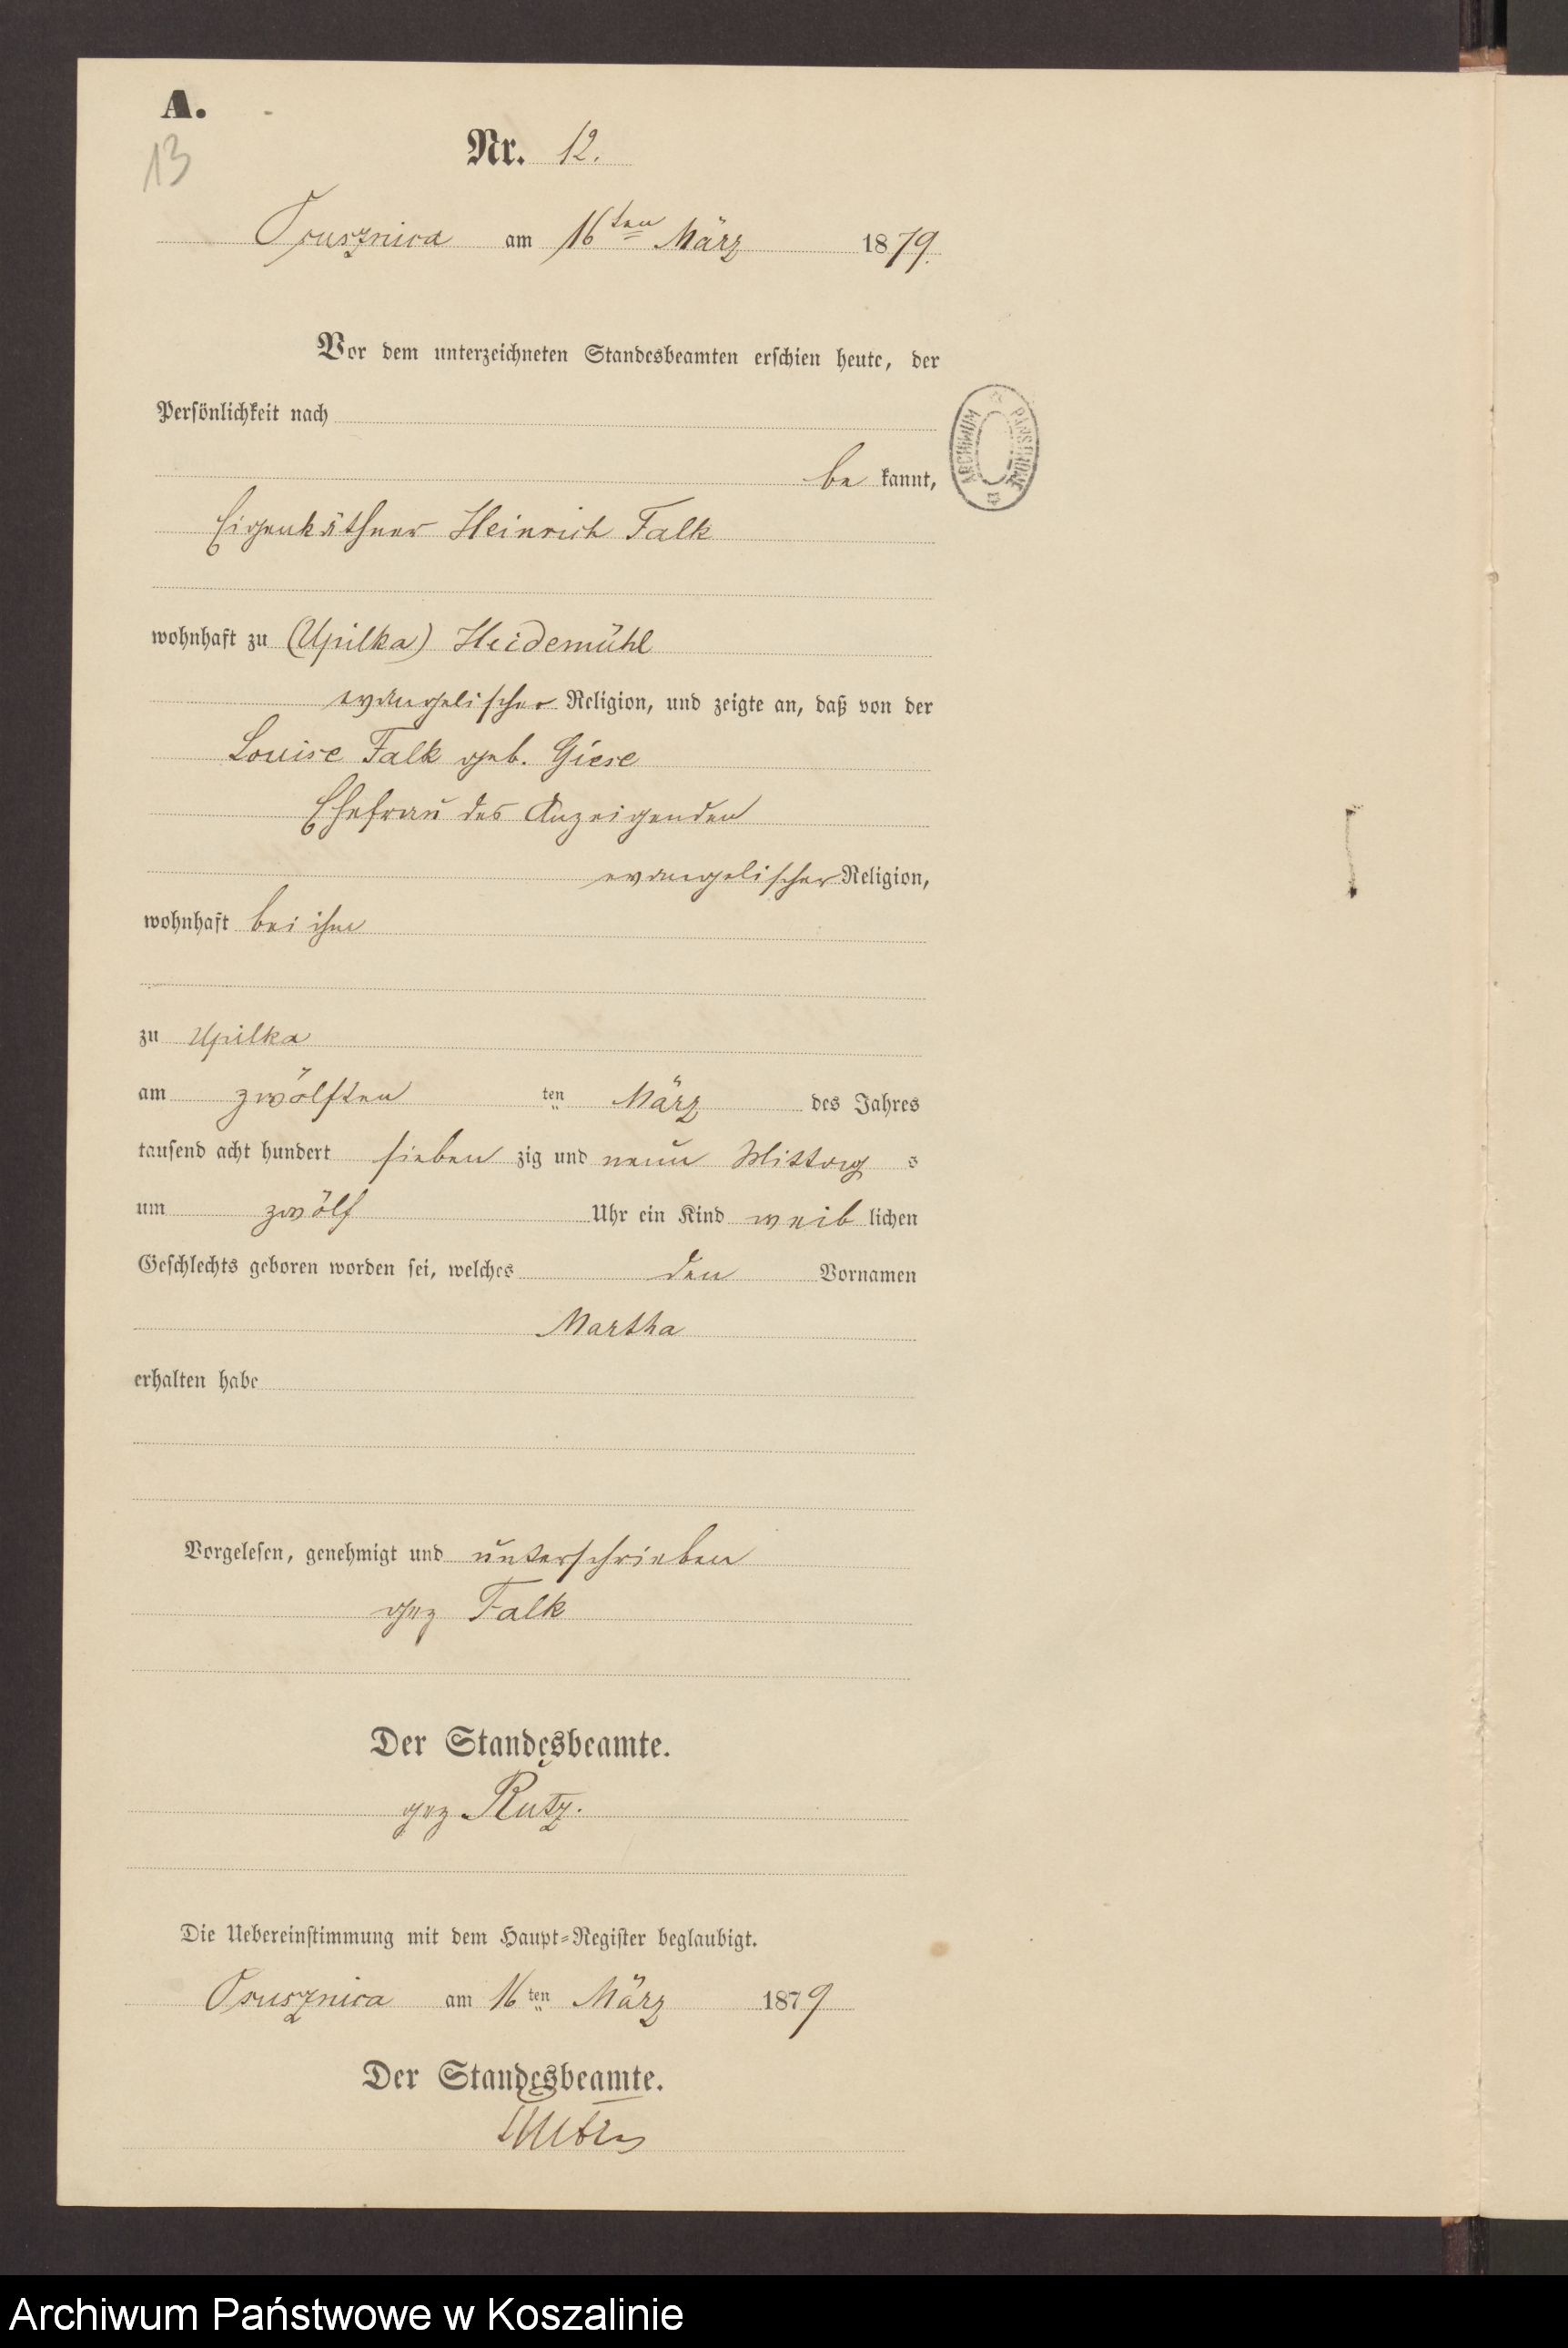 A.
13
Nr. 12.
Prusznica am 16ten März 1879.
Vor dem unterzeichneten Standesbeamten erschien heute, der
Persönlichkeit nach
be kannt,
ARCHIWUM PAŃSTWOWE
Eigenkäthner Heinrich Falk
wohnhaft zu (Upilka) Heidemühl
evangelischer Religion, und zeigte an, daß von der
Louise Falk geb. Giese
Ehefrau des Anzeigenden
evangelischer Religion,
wohnhaft bei ihm
zu Upilka
am zwölften ten März des Jahres
tausend acht hundert sieben zig und neun Mittag s
um zwölf Uhr ein Kind weib lichen
Geschlechts geboren worden sei, welches den Vornamen
Martha
erhalten habe
Vorgelesen, genehmigt und unterschrieben
gez Falk
Der Standesbeamte.
gez Rutz.
Die Uebereinstimmung mit dem Haupt-Register beglaubigt.
Prusznica am 16 ten März 1879
Der Standesbeamte.
Archiwum Państwowe w Koszalinie